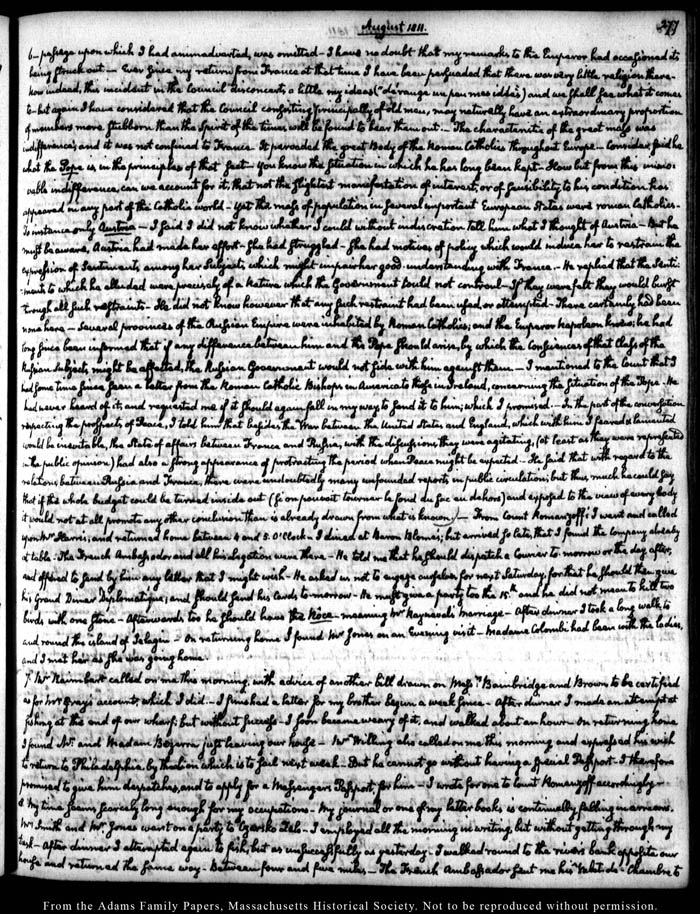 August 1811.
277
6- passage upon which I had animadverted, was omitted- I have no doubt that my remarks to the Emperor had occasioned its
being struck out- Ever since my return from France at that time I have been persuaded that there was very little religion there-
now indeed, this incident in the Council disconcerts a little my ideas ("dérange un peu mes idées") and we shall see what it comes
to- but again I have considered that the Council consisting principally of old men, may naturally have an extraordinary proportion
of members more stubborn than the Spirit of the times will be found to bear them out- The characteristic of the great mass was
indifference; and it was not confined to France. It pervaded the great Body of the Roman Catholics throughout Europe- Consider, said he
what the Pope is in the principles of that sect- You know the situation in which he has long been kept- How but from this
indifference, can we account for it, that not the slightest manifestation of interest, or of sensibility to his condition has
appeared in any part of the Catholic world- Yet the mass of population in several important European States were roman Catholics-
To instance only Austria- I said I did not know whether I could without indiscretion tell him what I thought of Austria- But he
must be aware, Austria had made her effort- She had struggled- She had motives of policy which would induce her to restrain the
expression of Sentiments among her Subjects, which might impair her good understanding with France- He replied that the Senti-
ments to which he alluded were precisely of a Nature which the Government could not controul- If they were felt they would burst
through all such restraints- He did not know however that any such restraint had been used, or attempted- There certainly had been
none here- Several provinces of the Russian Empire were inhabited by Roman Catholics; and the Emperor Napoleon knew; he had
long since been informed that if any difference between him and the Pope should arise, by which the Consciences of that Class of the
Russian Subjects might be affected, the Russian Government would not side with him against them- I mentioned to the Count that I
had some time since seen a letter from the Roman Catholic Bishops in America to those in Ireland, concerning the situation of the Pope- He
had never heard of it; and requested me if it should again fall in my way to send it to him; which I promised- In the part of the conversation
respecting the prospects of Peace, I told him that besides the War between the United States and England, which with him I feared & lamented
would be inevitable, the State of affairs between France and Russia, with the discussions they were agitating, (at least as they were represented
in the public opinion) had also a strong appearance of protracting the period when Peace might be expected- He said that with regard to the
relations between Russia and France, there were undoubtedly many unfounded reports in public circulation; but thus much he could say
that if the whole budget could be turned inside out (Si on pouvoit tourner le fond du sac au dehors) and exposed to the view of every body
it would not at all promote any other conclusion than is already drawn from what is known)- From Count Romanzoff; I went and called
upon Mr Harris; and returned home between 4 and 5. O'Clock- I dined at Baron Blome's; but arrived so late, that I found the company already
at table- The French Ambassador and all his legation were there- He told me that he should dispatch a Courier to-morrow or the day after;
and offered to send by him any letter that I might wish- He asked us not to engage ourselves for next Saturday, for that he should then give
his Grand Diner Diplomatique; and should send his Cards to-morrow- He must give a party too the 15th and he did not mean to kill two
birds with one stone- Afterwards too he should have the Noce- meaning Mr Rayneval's marriage- After dinner I took a long walk to
and round the island of Jelagin- On returning home I found Mr Jones on an Evening visit- Madame Colombi had been with the ladies,
and I met her as she was going home.
7. Mr Raimbert called on me this morning, with advice of another bill drawn on Messrs Bainbridge and Brown to be certified
as for Mr Gray's account; which I did- I finished a letter for my brother begun a week since- After dinner I made an attempt at
fishing at the end of our wharf; but without success- I soon became weary of it, and walked about an hour- On returning home
I found Mr and Madam Bezerra just leaving our house- Mr Willing also called on me this morning and expressed his wish
to return to Philadelphia, by that which is to sail next week- But he cannot go without having a special Passport- I therefore
promised to give him despatches, and to apply for a Messenger's Passport, for him- I wrote for one to Count Romanzoff accordingly-
8. My time seems scarcely long enough for my occupations- My journal or one of my letter books is continually falling in arrears.
Mr Smith and Mr Jones went on a party to Czarsko Zelo- I employed all the morning in writing, but without getting through my
task- After dinner I attempted again to fish, but as unsuccessfully as yesterday- I walked round to the river's bank opposite our
house and returned the same way- Between four and five miles- The French Ambassador sent me his Valet-de-Chambre to
From the Adams Family Papers, Massachusetts Historical Society. Not to be reproduced without permission.